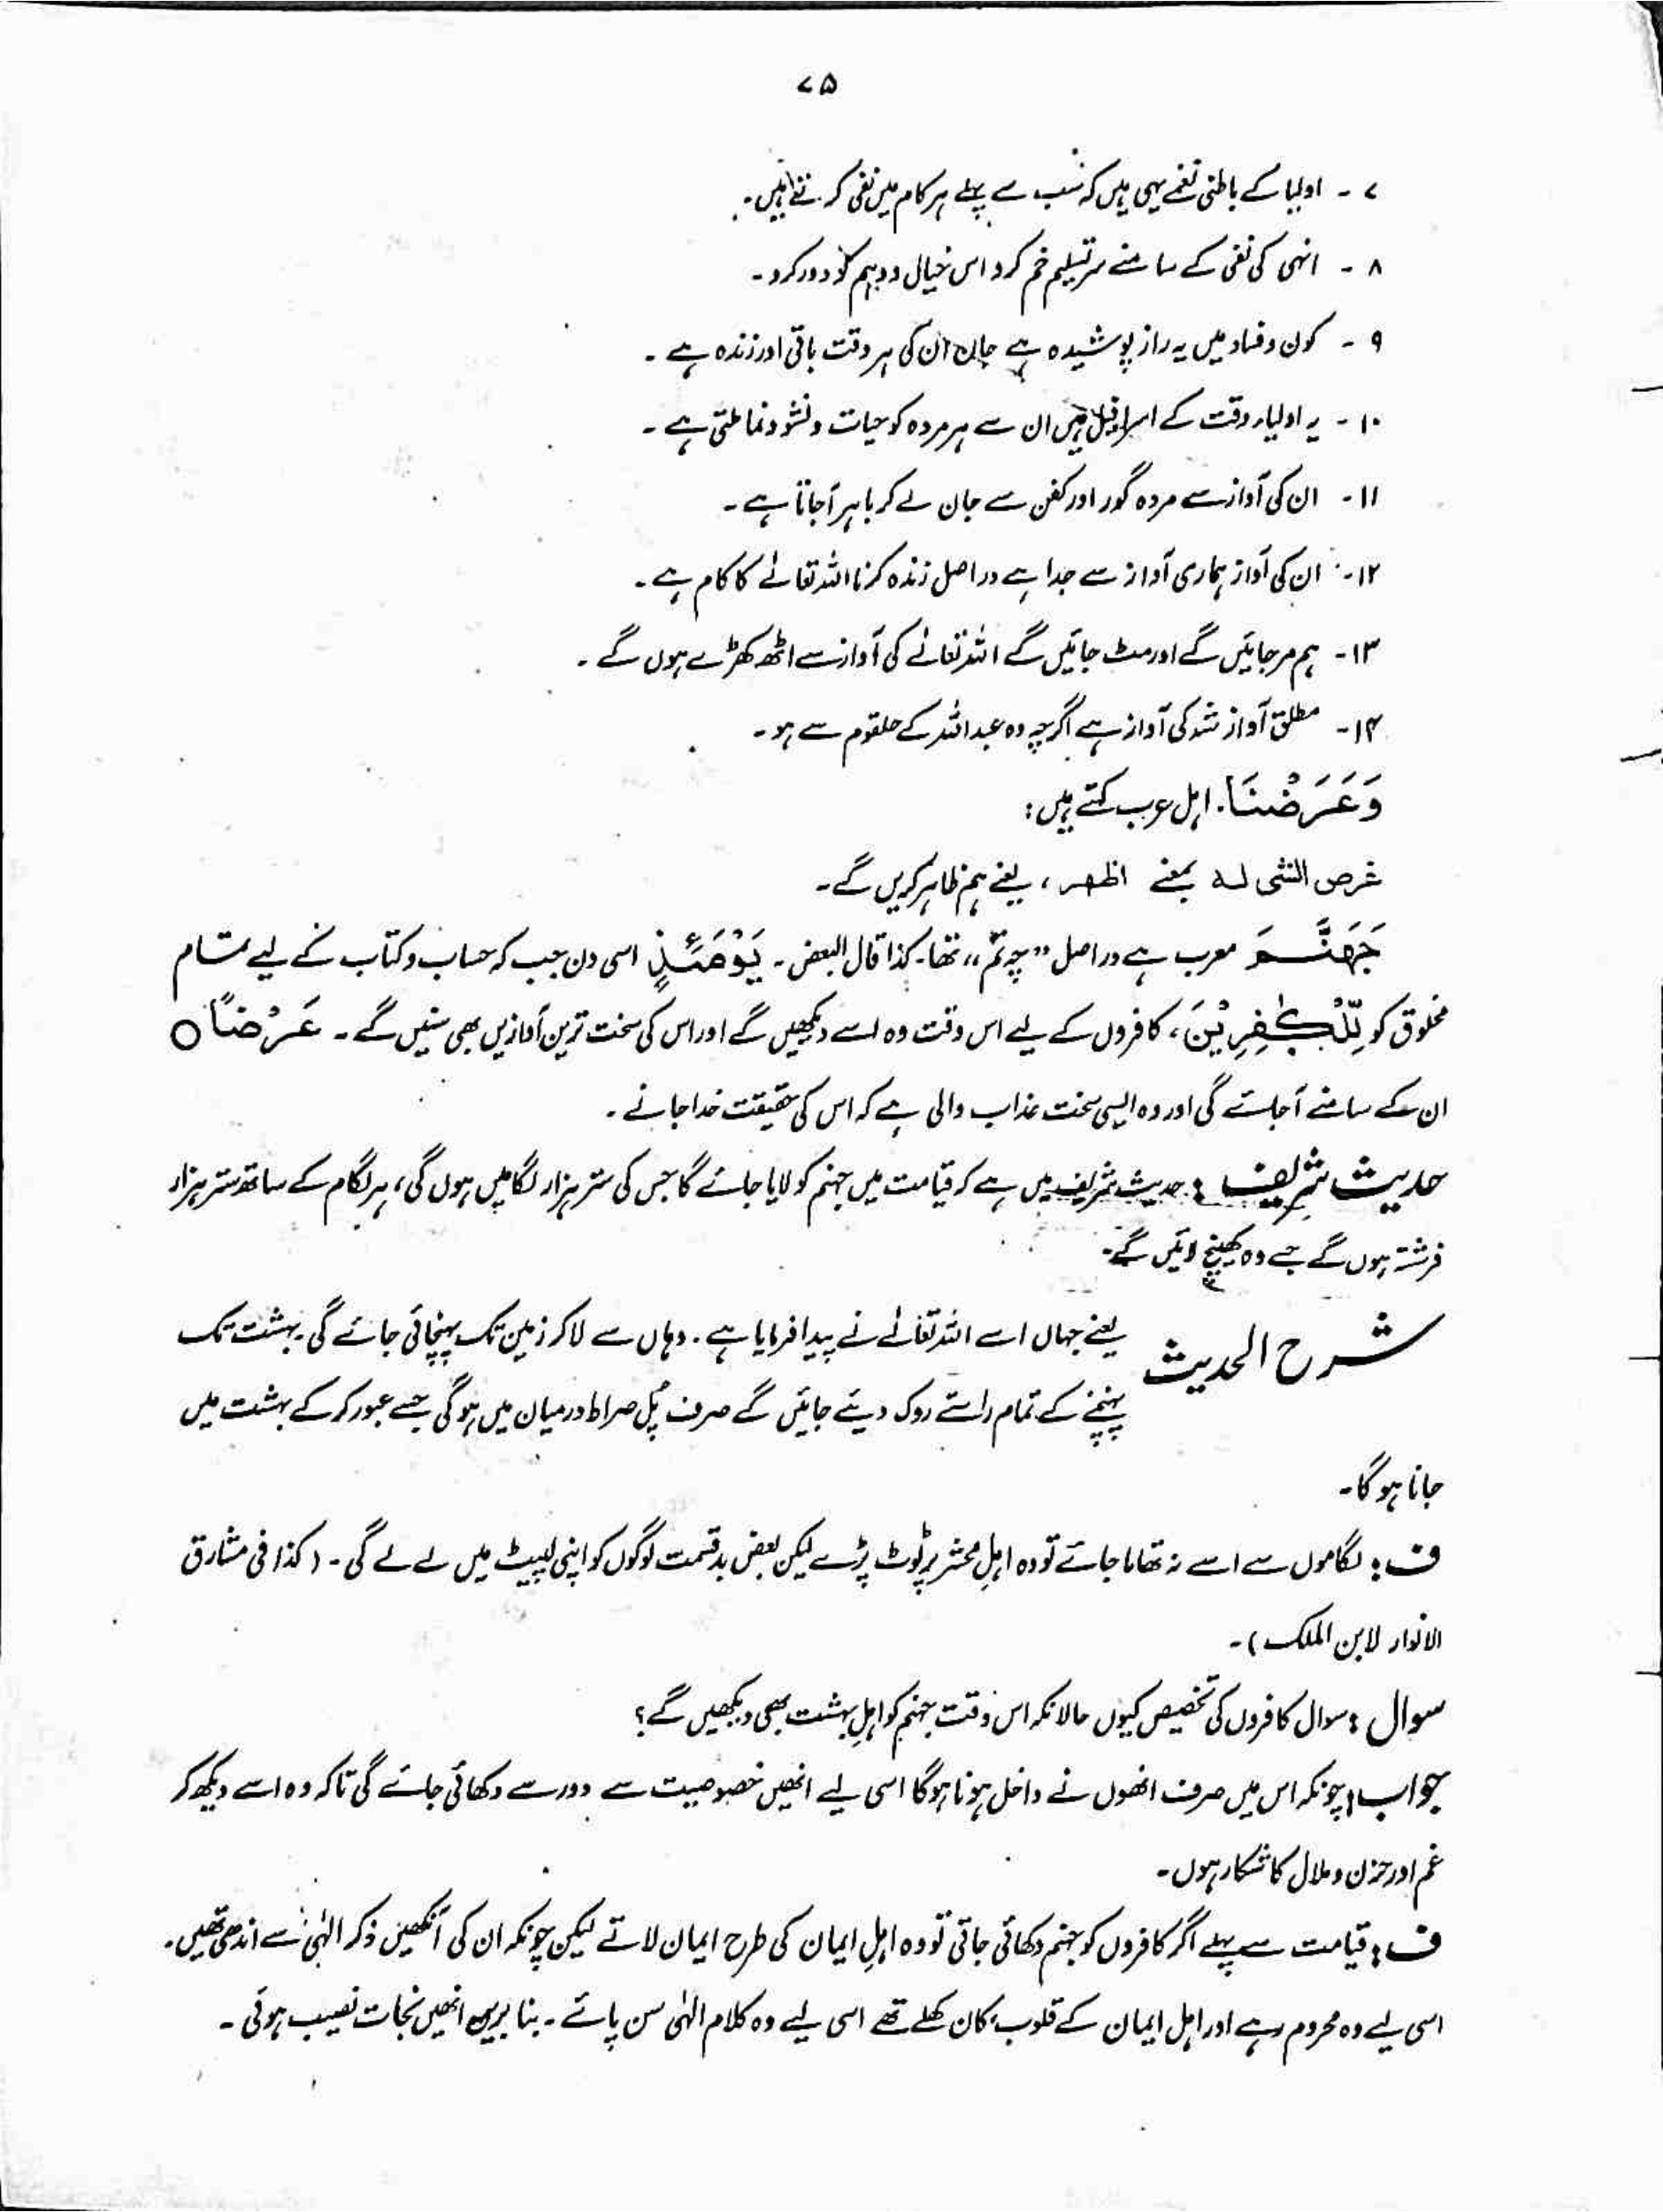 ۷۵
۷ - اولیا کے باطنی نغمے یہی ہیں کہ سب سے پہلے ہر کام میں نفی کرتے ہیں۔
۸ - انہی کی نفی کے سامنے سر تسلیم خم کرو اس خیال و وہم کو دور کرو۔
۹ - کون و فساد میں یہ راز پوشیدہ ہے جان ان کی ہر وقت باقی اور زندہ ہے۔
۱۰ - یہ اولیاء وقت کے اسرافیل ہیں ان سے ہر مردہ کو حیات و نشو و نما ملتی ہے۔
۱۱ - ان کی آواز سے مردہ گور اور کفن سے جان لے کر باہر آجاتا ہے۔
۱۲ - ان کی آواز ہماری آواز سے جدا ہے در اصل زندہ کرنا اللہ تعالےٰ کا کام ہے۔
۱۳ - ہم مر جائیں گے اور مٹ جائیں گے اللہ تعالےٰ کی آواز سے اٹھ کھڑے ہوں گے۔
۱۴ - مطلق آواز شہ کی آواز ہے اگرچہ وہ عبداللہ کے حلقوم سے ہو۔
وَعَرَضْنَا۔ اہل عرب کہتے ہیں:
عرض الشیٔ لہ بمعنے اظھر، یعنے ہم ظاہر کریں گے۔
جَهَنَّمَ معرب ہے دراصل "چہ نم" تھا۔ کذا قال البعض۔ یَوْمَئِذٍ اسی دن جب کہ حساب و کتاب کے لیے تمام
مخلوق کو لِّلْكٰفِرِيْنَ، کافروں کے لیے اس وقت وہ اسے دیکھیں گے اور اس کی سخت ترین آوازیں بھی سنیں گے۔ عَرْضًا ○
ان کے سامنے آجائے گی اور وہ ایسی سخت عذاب والی ہے کہ اس کی حقیقت خدا جانے۔
حدیث شریف : حدیث شریف میں ہے کہ قیامت میں جہنم کو لایا جائے گا جس کی ستر ہزار لگامیں ہوں گی، ہر لگام کے ساتھ ستر ہزار
فرشتہ ہوں گے جسے وہ کھینچ لائیں گے۔
شرح الحدیث یعنے جہاں اسے اللہ تعالےٰ نے پیدا فرمایا ہے۔ وہاں سے لا کر زمین تک پہنچائی جائے گی۔ بہشت تک
پہنچنے کے تمام راستے روک دیئے جائیں گے صرف پل صراط درمیان میں ہوگی جسے عبور کر کے بہشت میں
جانا ہوگا۔
ف : لگاموں سے اسے نہ تھاما جائے تو وہ اہلِ محشر پر ٹوٹ پڑے لیکن بعض بدقسمت لوگوں کو اپنی لپیٹ میں لے لے گی۔ (کذا فی مشارق
الانوار لابن الملک)۔
سوال : سوال کافروں کی تخصیص کیوں حالانکہ اس وقت جہنم کو اہلِ بہشت بھی دیکھیں گے؟
جواب : چونکہ اس میں صرف انھوں نے داخل ہونا ہوگا اسی لیے انھیں خصوصیت سے دور سے دکھائی جائے گی تاکہ وہ اسے دیکھ کر
غم اور حزن و ملال کا شکار ہوں۔
ف : قیامت سے پہلے اگر کافروں کو جہنم دکھائی جاتی تو وہ اہلِ ایمان کی طرح ایمان لاتے لیکن چونکہ ان کی آنکھیں ذکر الٰہی سے اندھی تھیں۔
اسی لیے وہ محروم رہے اور اہل ایمان کے قلوب کان کھلے تھے اسی لیے وہ کلام الٰہی سن پائے۔ بنا بریں انھیں نجات نصیب ہوئی۔